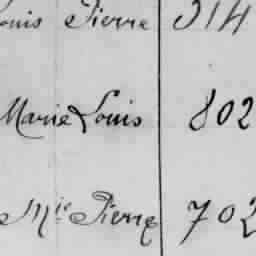 Louis Pierre 314
Marie Louis 802
Mie Pierre 702